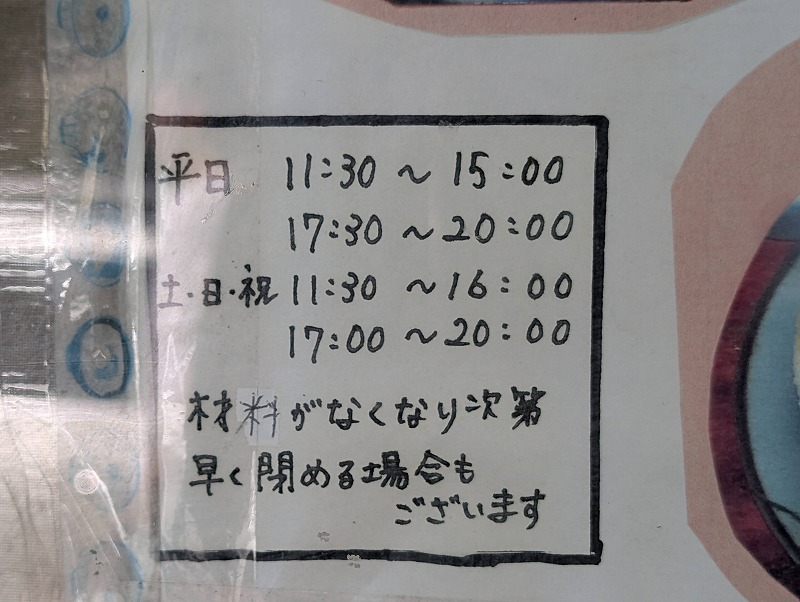 平日 11:30 ～ 15:00
17:30 ～ 20:00
土・日・祝 11:30 ～ 16:00
17:00 ～ 20:00
材料がなくなり次第
早く閉める場合も
ございます